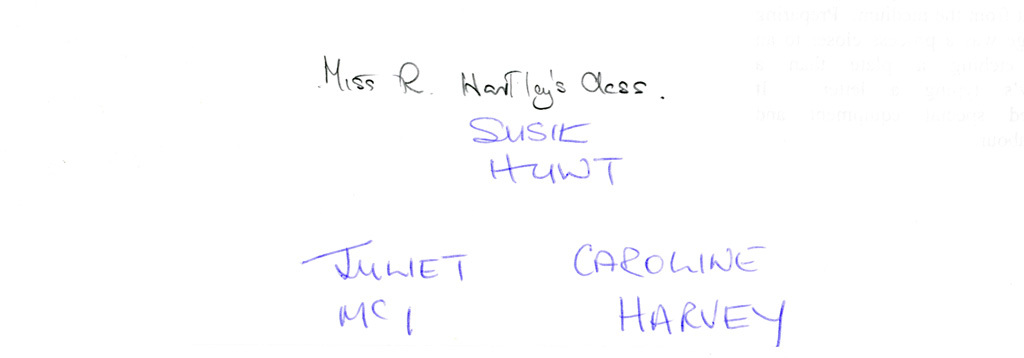 Miss R. Hartley's Class.
SUSIE
HUNT
JULIET
CAROLINE
MC I
HARVEY